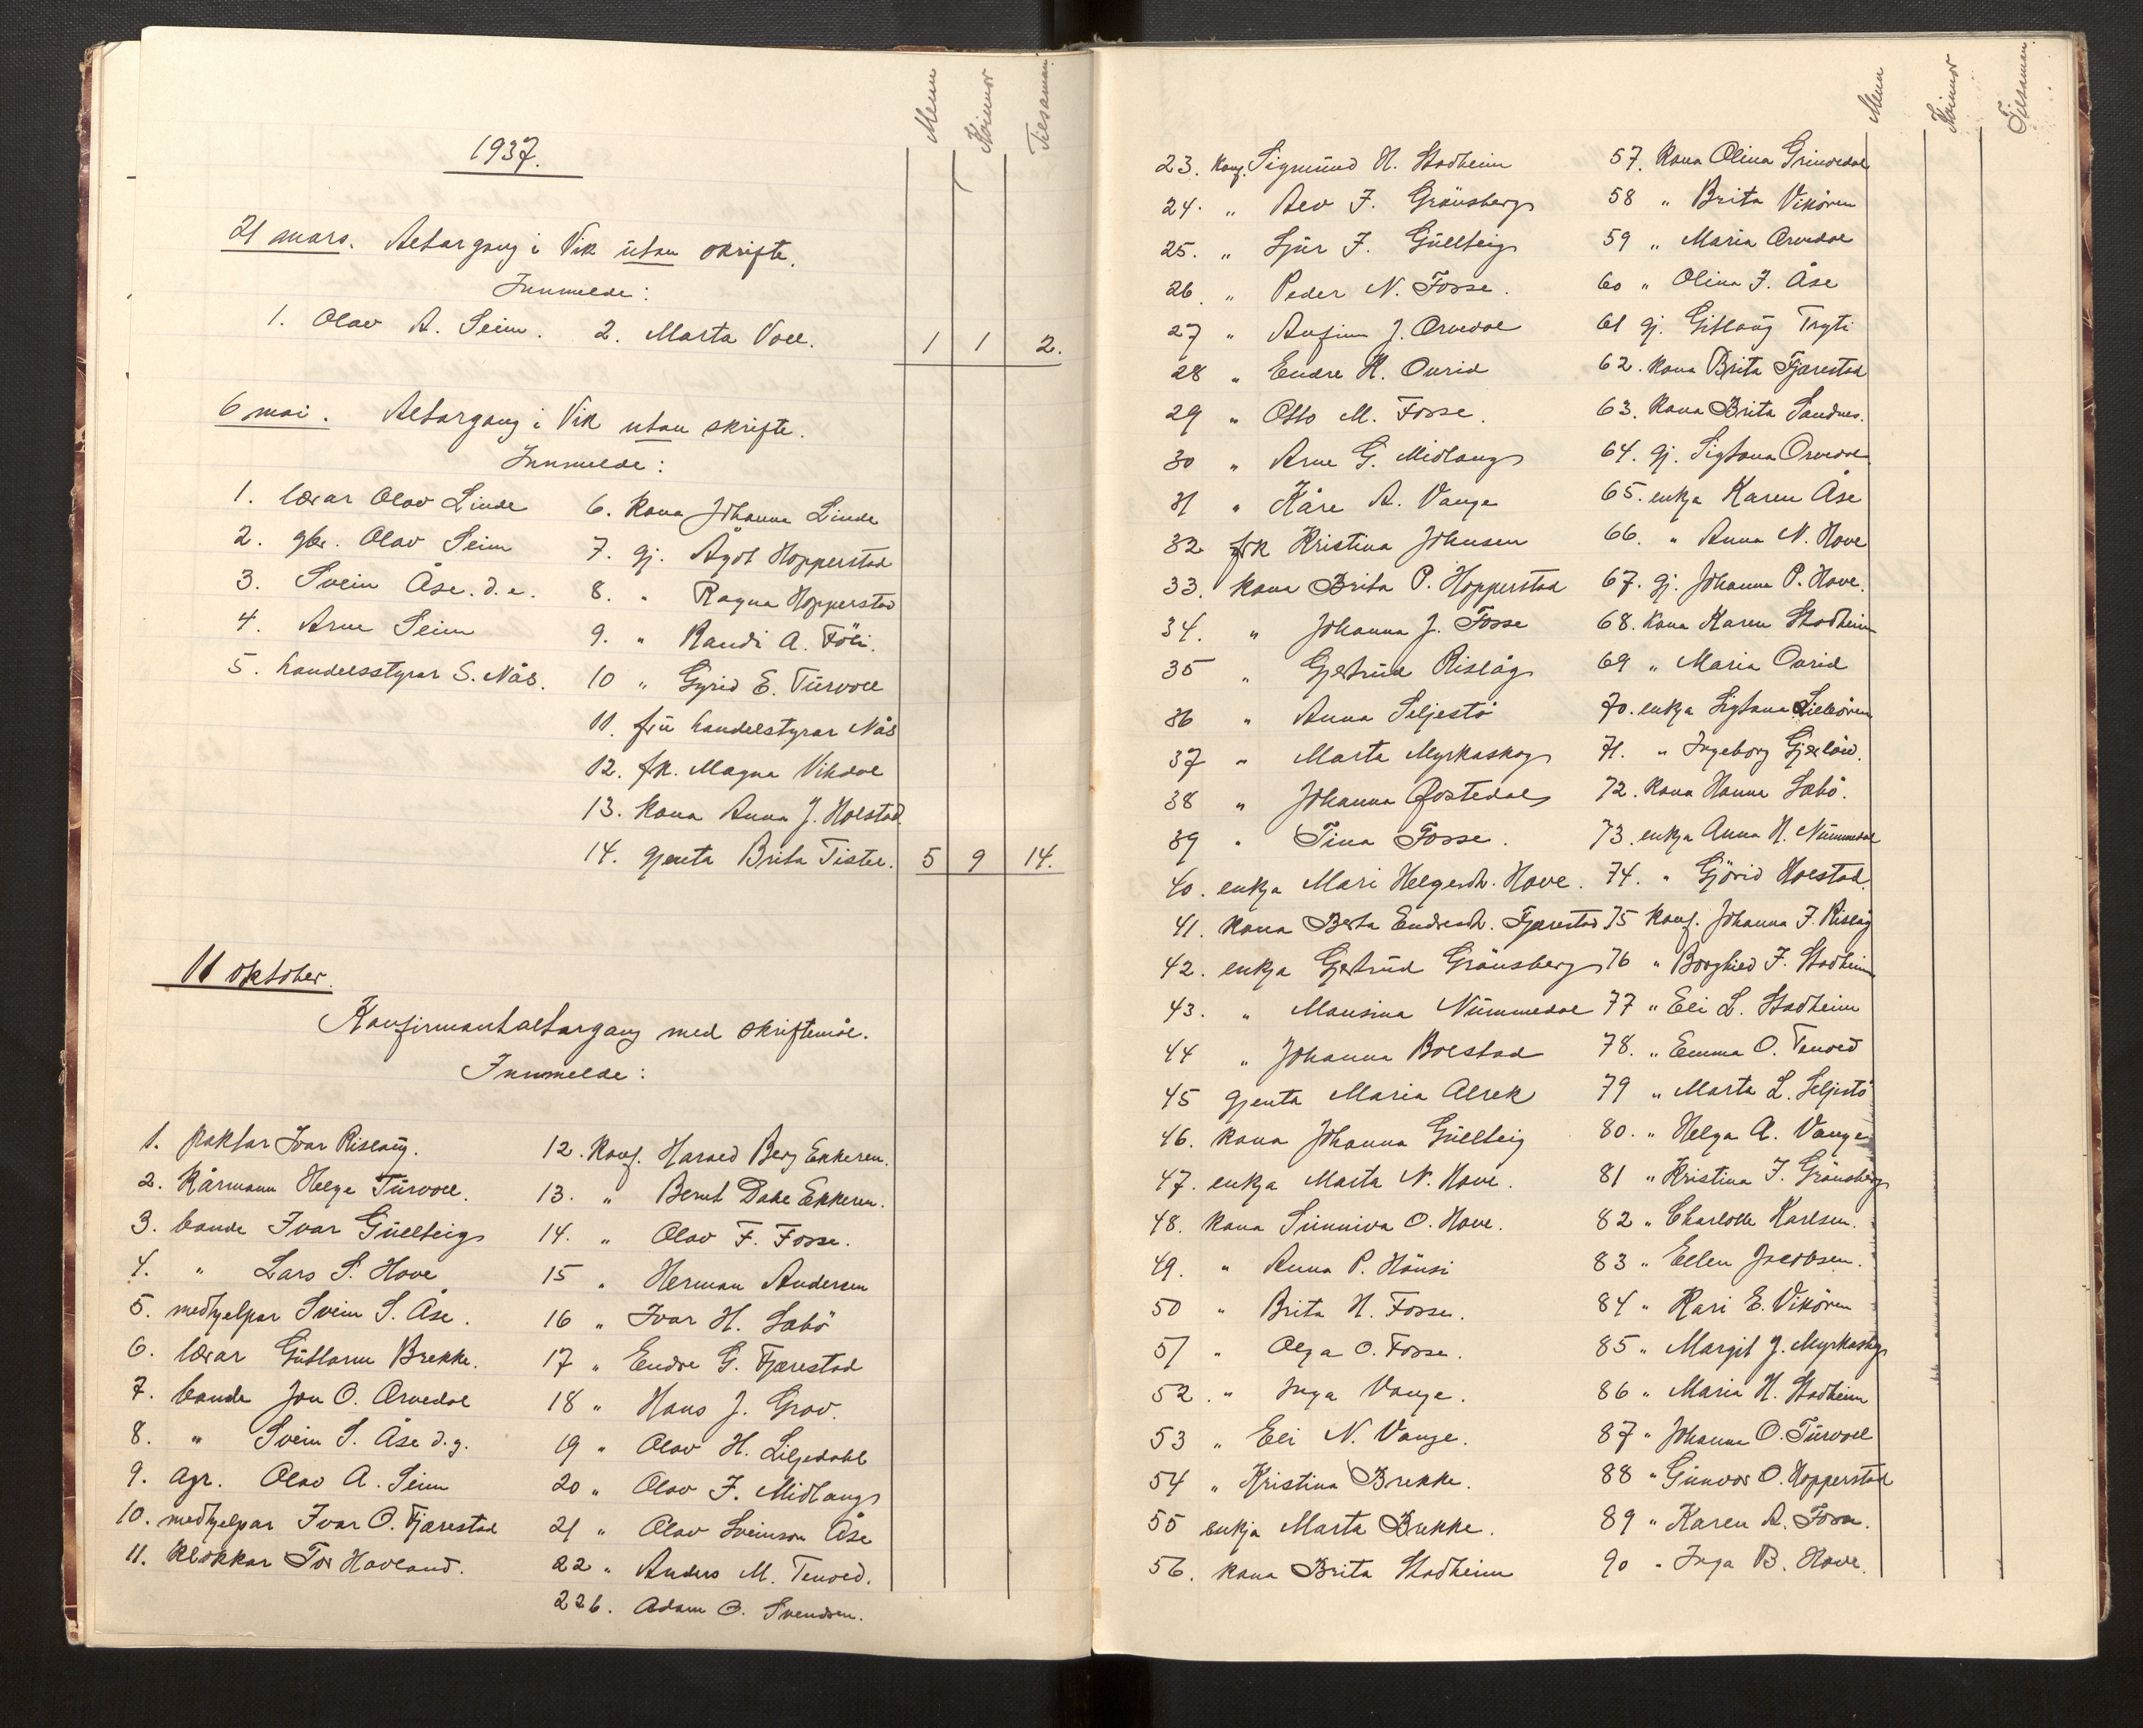 Menn Kvinnor Tilsaman
1937.
21 mars. Altargang i Vik utan skrifte.
Innmelde:
1. Olav A. Seim. 2. Marta Voll. 1 1 2.
6 mai. Altargang i Vik utan skrifte.
Innmelde:
1. lærar Olav Linde
2. gbr. Olav Seim
3. Svein Åse. d.e.
4. Arne Seim
5. handelsstyrar S. Nås.
6. Kona Johanna Linde
7. gj. Ågot Hopperstad
8. " Ragna Hopperstad
9. " Randi A. Föli.
10 " Gyrid E. Turvoll
11. frü handelstyrar Nås
12. frk. Magna Vikdal
13. Kona Anna J. Holstad.
14. gjenta Brita Tistel. 5 9 14.
11 oktober.
Konfirmantaltargang med skriftemål.
Innmelde:
1. paktar Ivar Rislaug.
2. Kårmann Helge Türvoll.
3. bonde Ivar Güllteig
4. " Lars S. Hove
5. medhjelpar Svein S. Åse.
6. lærar Güttorm Brekke.
7. bonde Jon O. Orvedal
8. " Svein S. Åse d.y.
9. agr. Olav A. Seim
10. medhjelpar Ivar O. Fjærestad
11. klokkar Tor Havland.
12. Konf. Harald Berg Ekkeren.
13. " Bernt Dahe Ekkeren.
14. " Olav F. Fosse.
15 " Herman Andersen
16 " Ivar H. Sæbö
17 " Endre G. Fjærestad
18 " Hans J. Grov.
19 " Olav H. Liljedahl
20 " Olav I. Midlang
21 " Olav Sveinson Åse
22 " Anders M. Tenold.
22b. Adam O. Svendsen.
Menn Kvinnor Tilsaman
23. Konf. Sigmünd H. Stadheim
24. " Alv J. Grönsberg
25. " Sjür J. Güllteig
26. " Peder N. Fosse.
27 " Anfinn J. Orvedal
28 " Endre H. Ovrid
29 " Otto M. Fosse.
30 " Arne G. Midlang
31 " Kåre A. Vange
32 frk Kristina Johnsen
33. kona Brita P. Hopperstad
34. " Johanna J. Fosse
35 " Gjertrüd Rislåg
36 " Anna Seljestö
37 " Marta Myrkaskog
38 " Johanna Östedal
39 " Tina Fosse.
40. enkja Mari Helgesdt. Hove.
41. kona Berta Endresdt. Fjærestad
42. enkja Gjertrüd Grönsberg
43. " Monsina Nümmedal
44 " Johanna Bolstad
45 gjenta Maria Alrek
46. kona Johanna Güllteig
47. enkja Marta N. Hove.
48. kona Sünniva O. Hove.
49. " Anna P. Hönsi
50 " Brita H. Fosse.
51 " Olga O. Fosse.
52. " Inga Vange.
53 " Eli N. Vange.
54 " Kristina Brekke.
55 enkja Marta Brekke.
56. kona Brita Stadheim
57. kona Olina Grinvedal
58 " Brita Vikören
59 " Maria Orvedal
60 " Olina J. Åse
61 gj. Gitlaug Tryti
62. kona Brita Fjærestad
63. kona Brita Sandnes.
64. gj. Sigtona Orvedal
65. enkja Karen Åse
66. " Anna N. Hove
67. gj. Johanna P. Hove.
68. kona Karen Stadheim
69 " Maria Ovrid
70. enkja Sigtona Lilleören
71. " Ingeborg Gjerlöw.
72. kona Hanna Sæbö.
73. enkja Anna H. Nümmedal
74. " Gjörid Holstad.
75 konf. Johanna J. Rislåg
76 " Borghild J. Stadheim
77 " Eli L. Stadheim
78. " Emma O. Tenold
79 " Marta L. Seljestö
80. " Helga A. Vange
81 " Kristina J. Grönsberg
82 " Charlotte Karlsen.
83 " Ellen Jacobsen.
84 " Kari E. Vikören
85 " Margit J. Myrkaskog
86 " Maria H. Stadheim
87 " Johanna O. Türvoll
88 " Günvor O. Hopperstad
89 " Karen A. Fosse.
90 " Inga B. Hove.